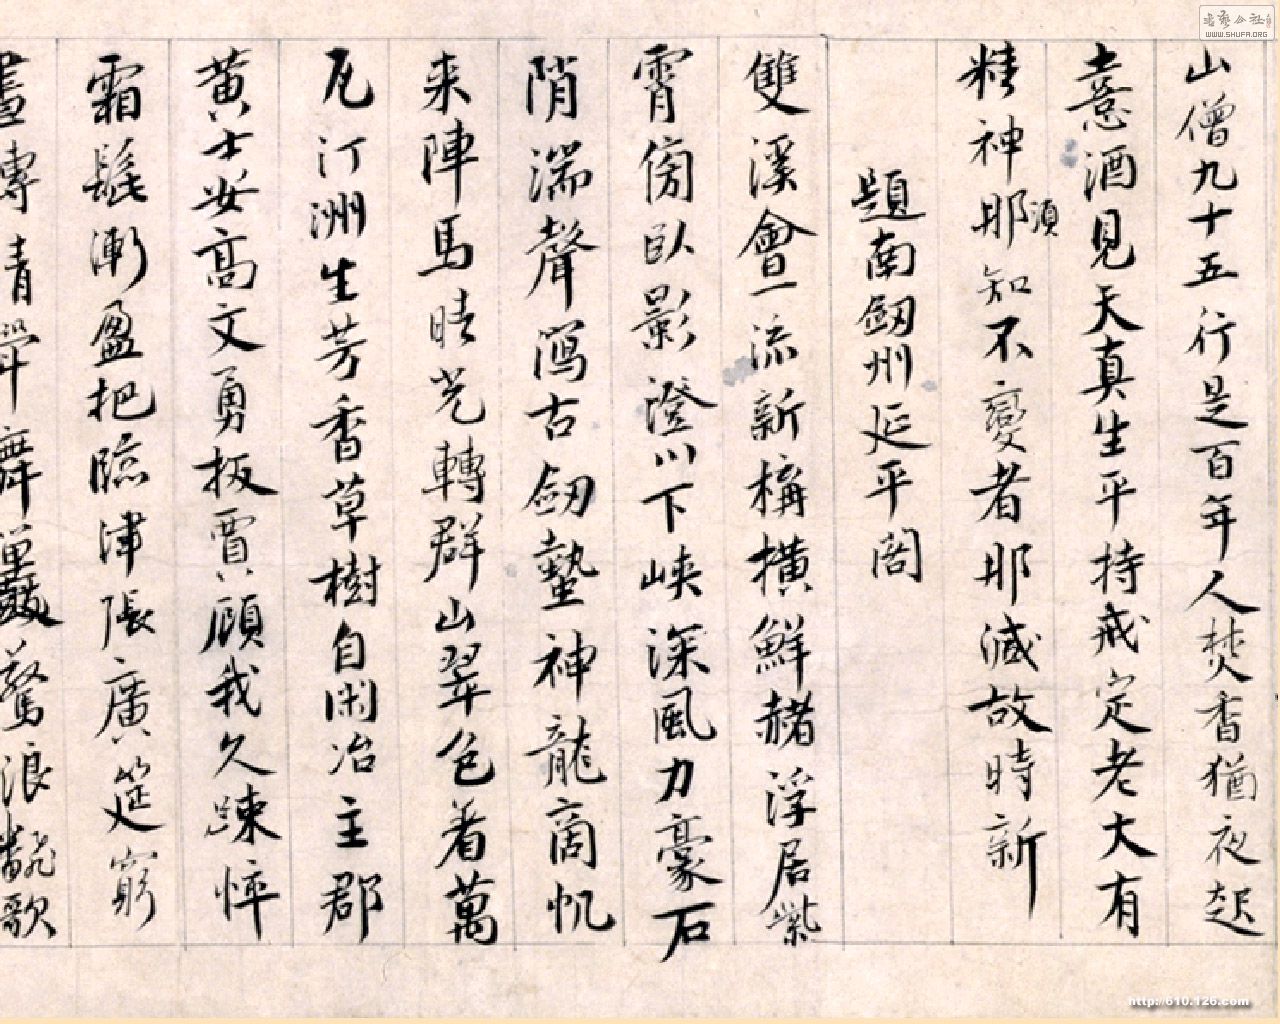 山僧九十五行是百年人焚香猶夜起
憙酒見天真生平持戒定老大有
精神耶須知不變者耶減故時新
題南劔州延平閣
雙溪會一流新構橫鮮赭浮居紫
霄傍臥影澄川下峽深風力豪石
陗湍聲瀉古劔蟄神龍商帆
来陣馬晴光轉群山翠色着萬
瓦汀洲生芳香草樹自閑冶主郡
黃士安高文勇扳賈顧我久踈悴
霜髭漸盈把臨津張廣筵窮
晝傳清斝舞疊驚浪翻歌
書艺公社
WWW.SHUFA.ORG
http://610.126.com